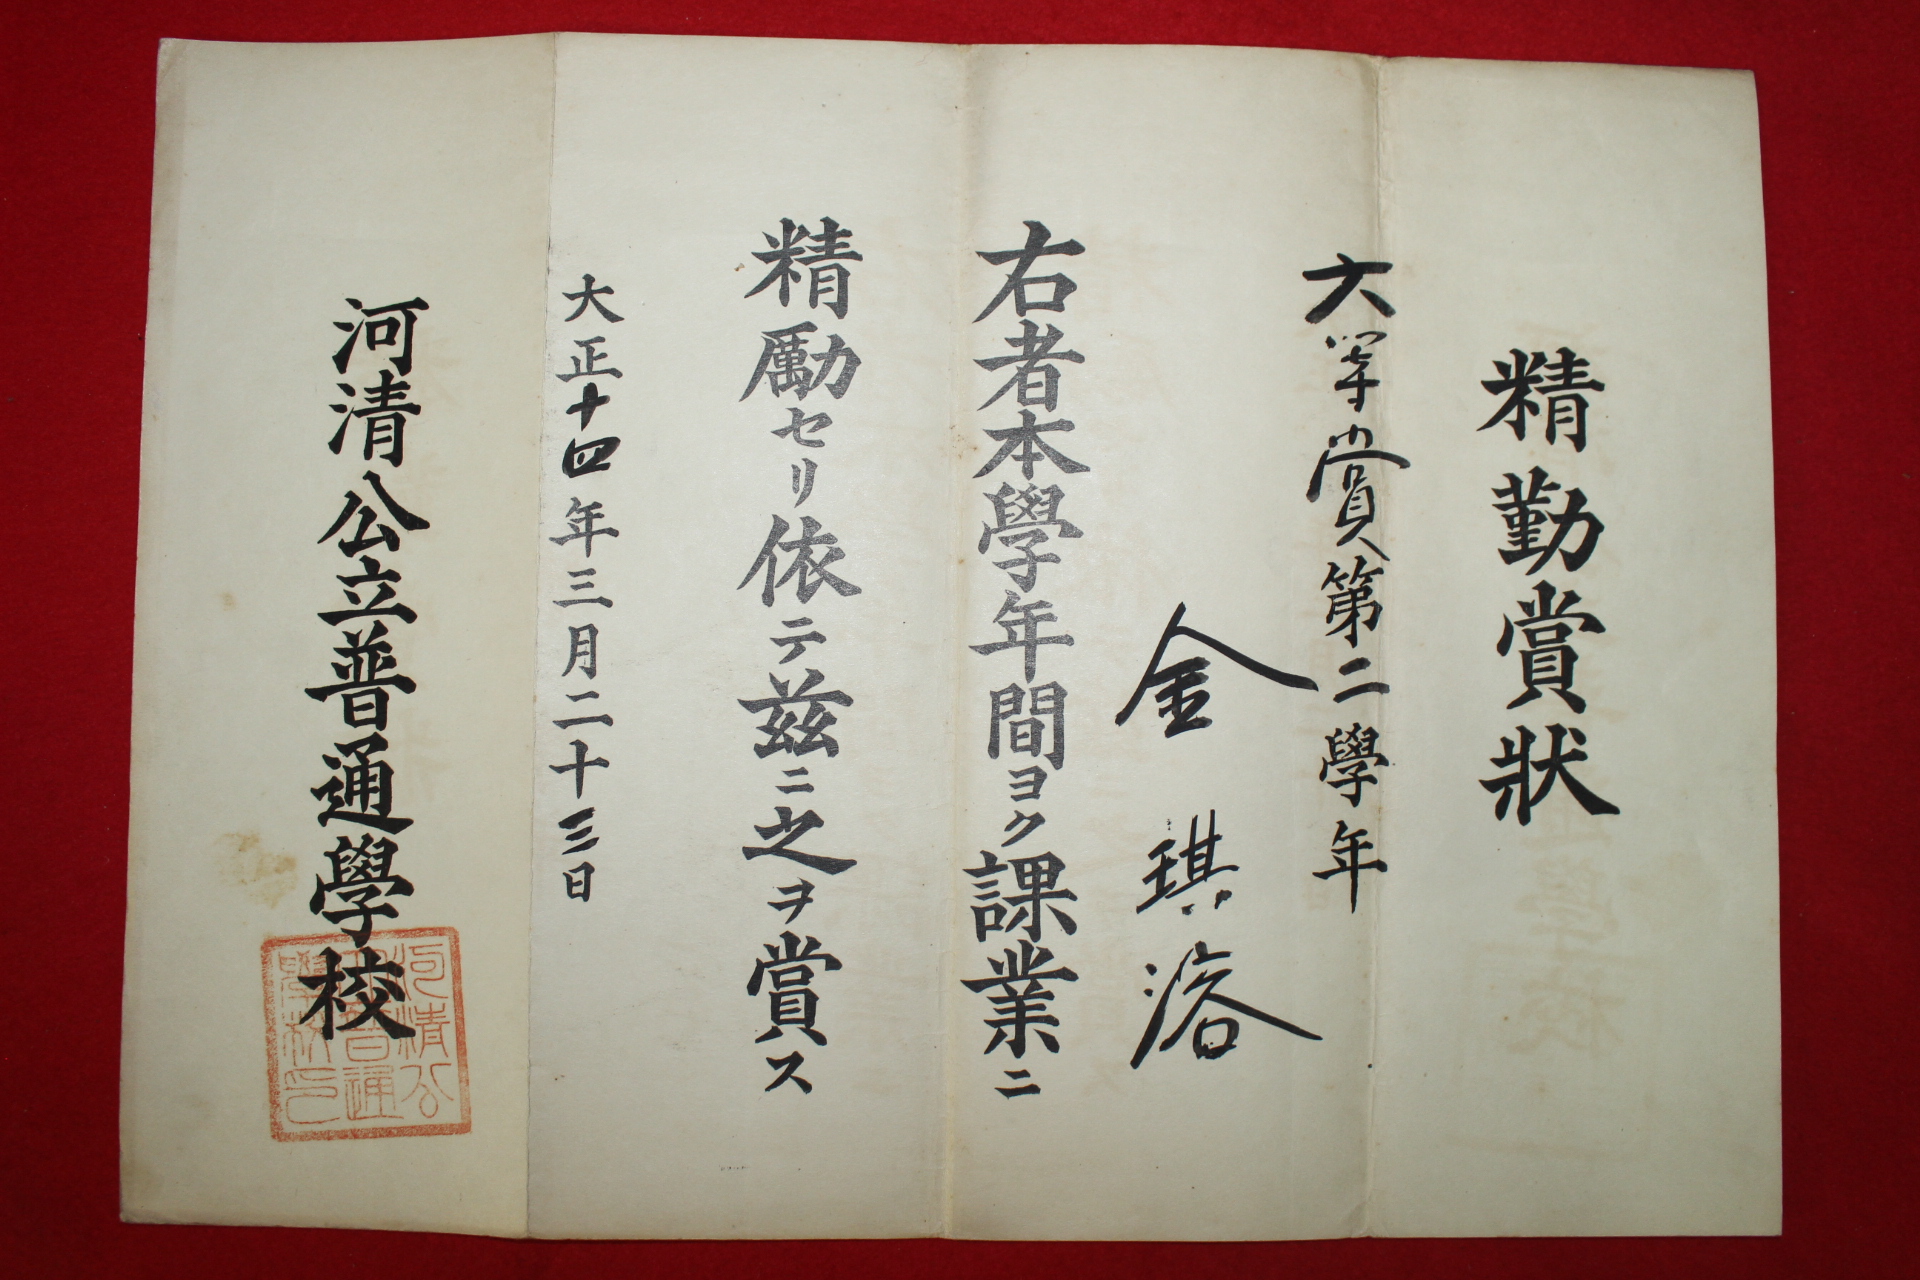 精勤賞狀
六等賞第二學年
金琪洛
右者本學年間ヨク課業ニ
精勵セリ依テ茲ニ之ヲ賞ス
大正十四年三月二十三日
河清公立普通學校
河清公
立普通
學校印